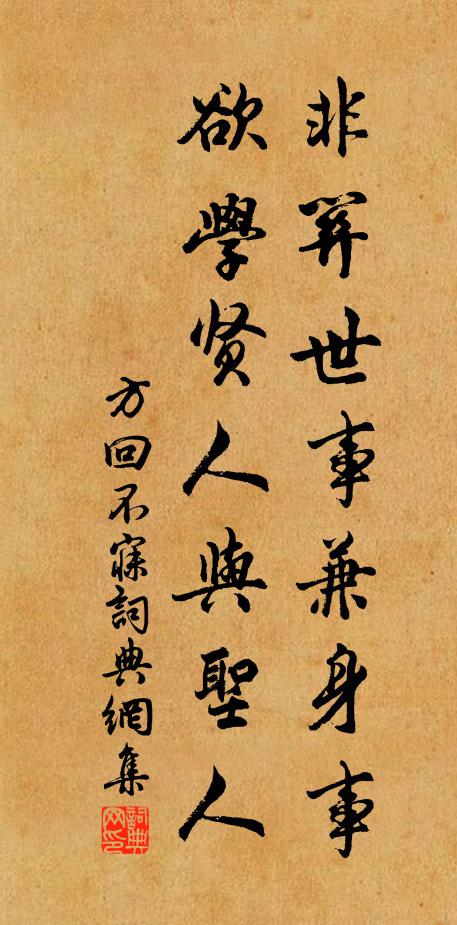 非關世事兼身事
欲學贤人與聖人
方回不寐詞典網集
詞典
网印